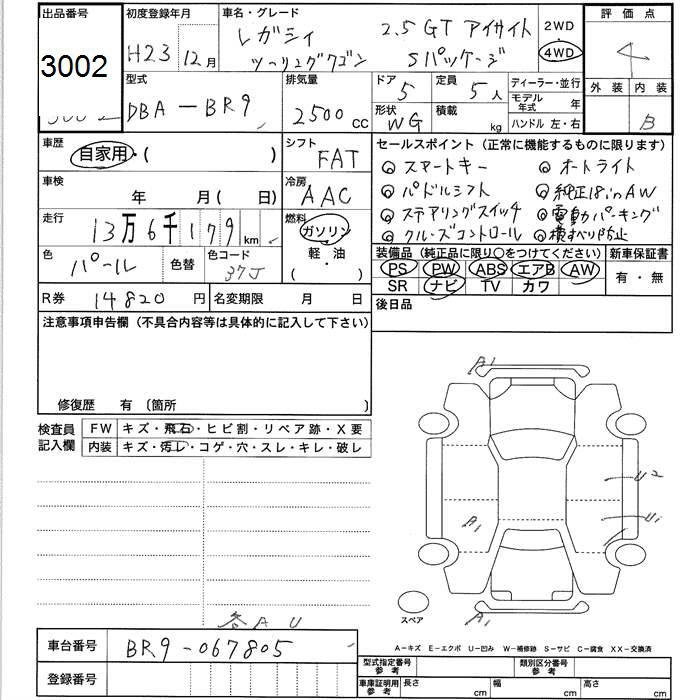 出品番号
3002
初度登録年月
H23 12月
車名・グレード
レガシィ 2.5GT アイサイト
ツーリングワゴン Sパッケージ
2WD
4WD
評価点
4
外装 内装
B
型式
DBA-BR9
排気量
2500 cc
ドア
5
定員
5人
形状
WG
積載
kg
ディーラー・並行
モデル年式 年
ハンドル 左・右
車歴
自家用・( )
シフト
FAT
車検
年 月( 日)
冷房
AAC
走行
13万6千179 km
燃料
ガソリン
軽・油
( )
色
パール
色替
色コード
37J
R券 14820 円
名変期限 月 日
セールスポイント (正常に機能するものに限ります)
◎スマートキー ◎オートライト
◎パドルシフト ◎純正18inAW
◎ステアリングスイッチ ◎電動パーキング
◎クルーズコントロール ◎横すべり防止
装備品 (純正品に限り○をつけてください)
PS PW ABS エアB AW
SR ナビ TV カワ
新車保証書
有・無
後日品
注意事項申告欄 (不具合内容等は具体的に記入して下さい)
修復歴 有 〔箇所 〕
検査員記入欄
FW キズ・飛石・ヒビ割・リペア跡・X要
内装 キズ・汚レ・コゲ・穴・スレ・キレ・破レ
A1
U2
A1
U1
スペア
A1
各AU
A-キズ E-エクボ U-凹み W-補修跡 S-サビ C-腐食 XX-交換済
車台番号 BR9-067805
登録番号
型式指定番号 参考
類別区分番号 参考
車庫証明用 参考
長さ cm
幅 cm
高さ cm